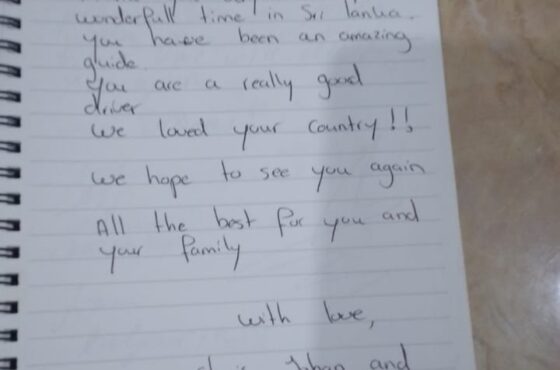 wonderfull time in Sri lanka.
you have been an amazing
guide
You are a really good
driver
We loved your country!!
We hope to see you again
All the best for you and
your family
with love,
and